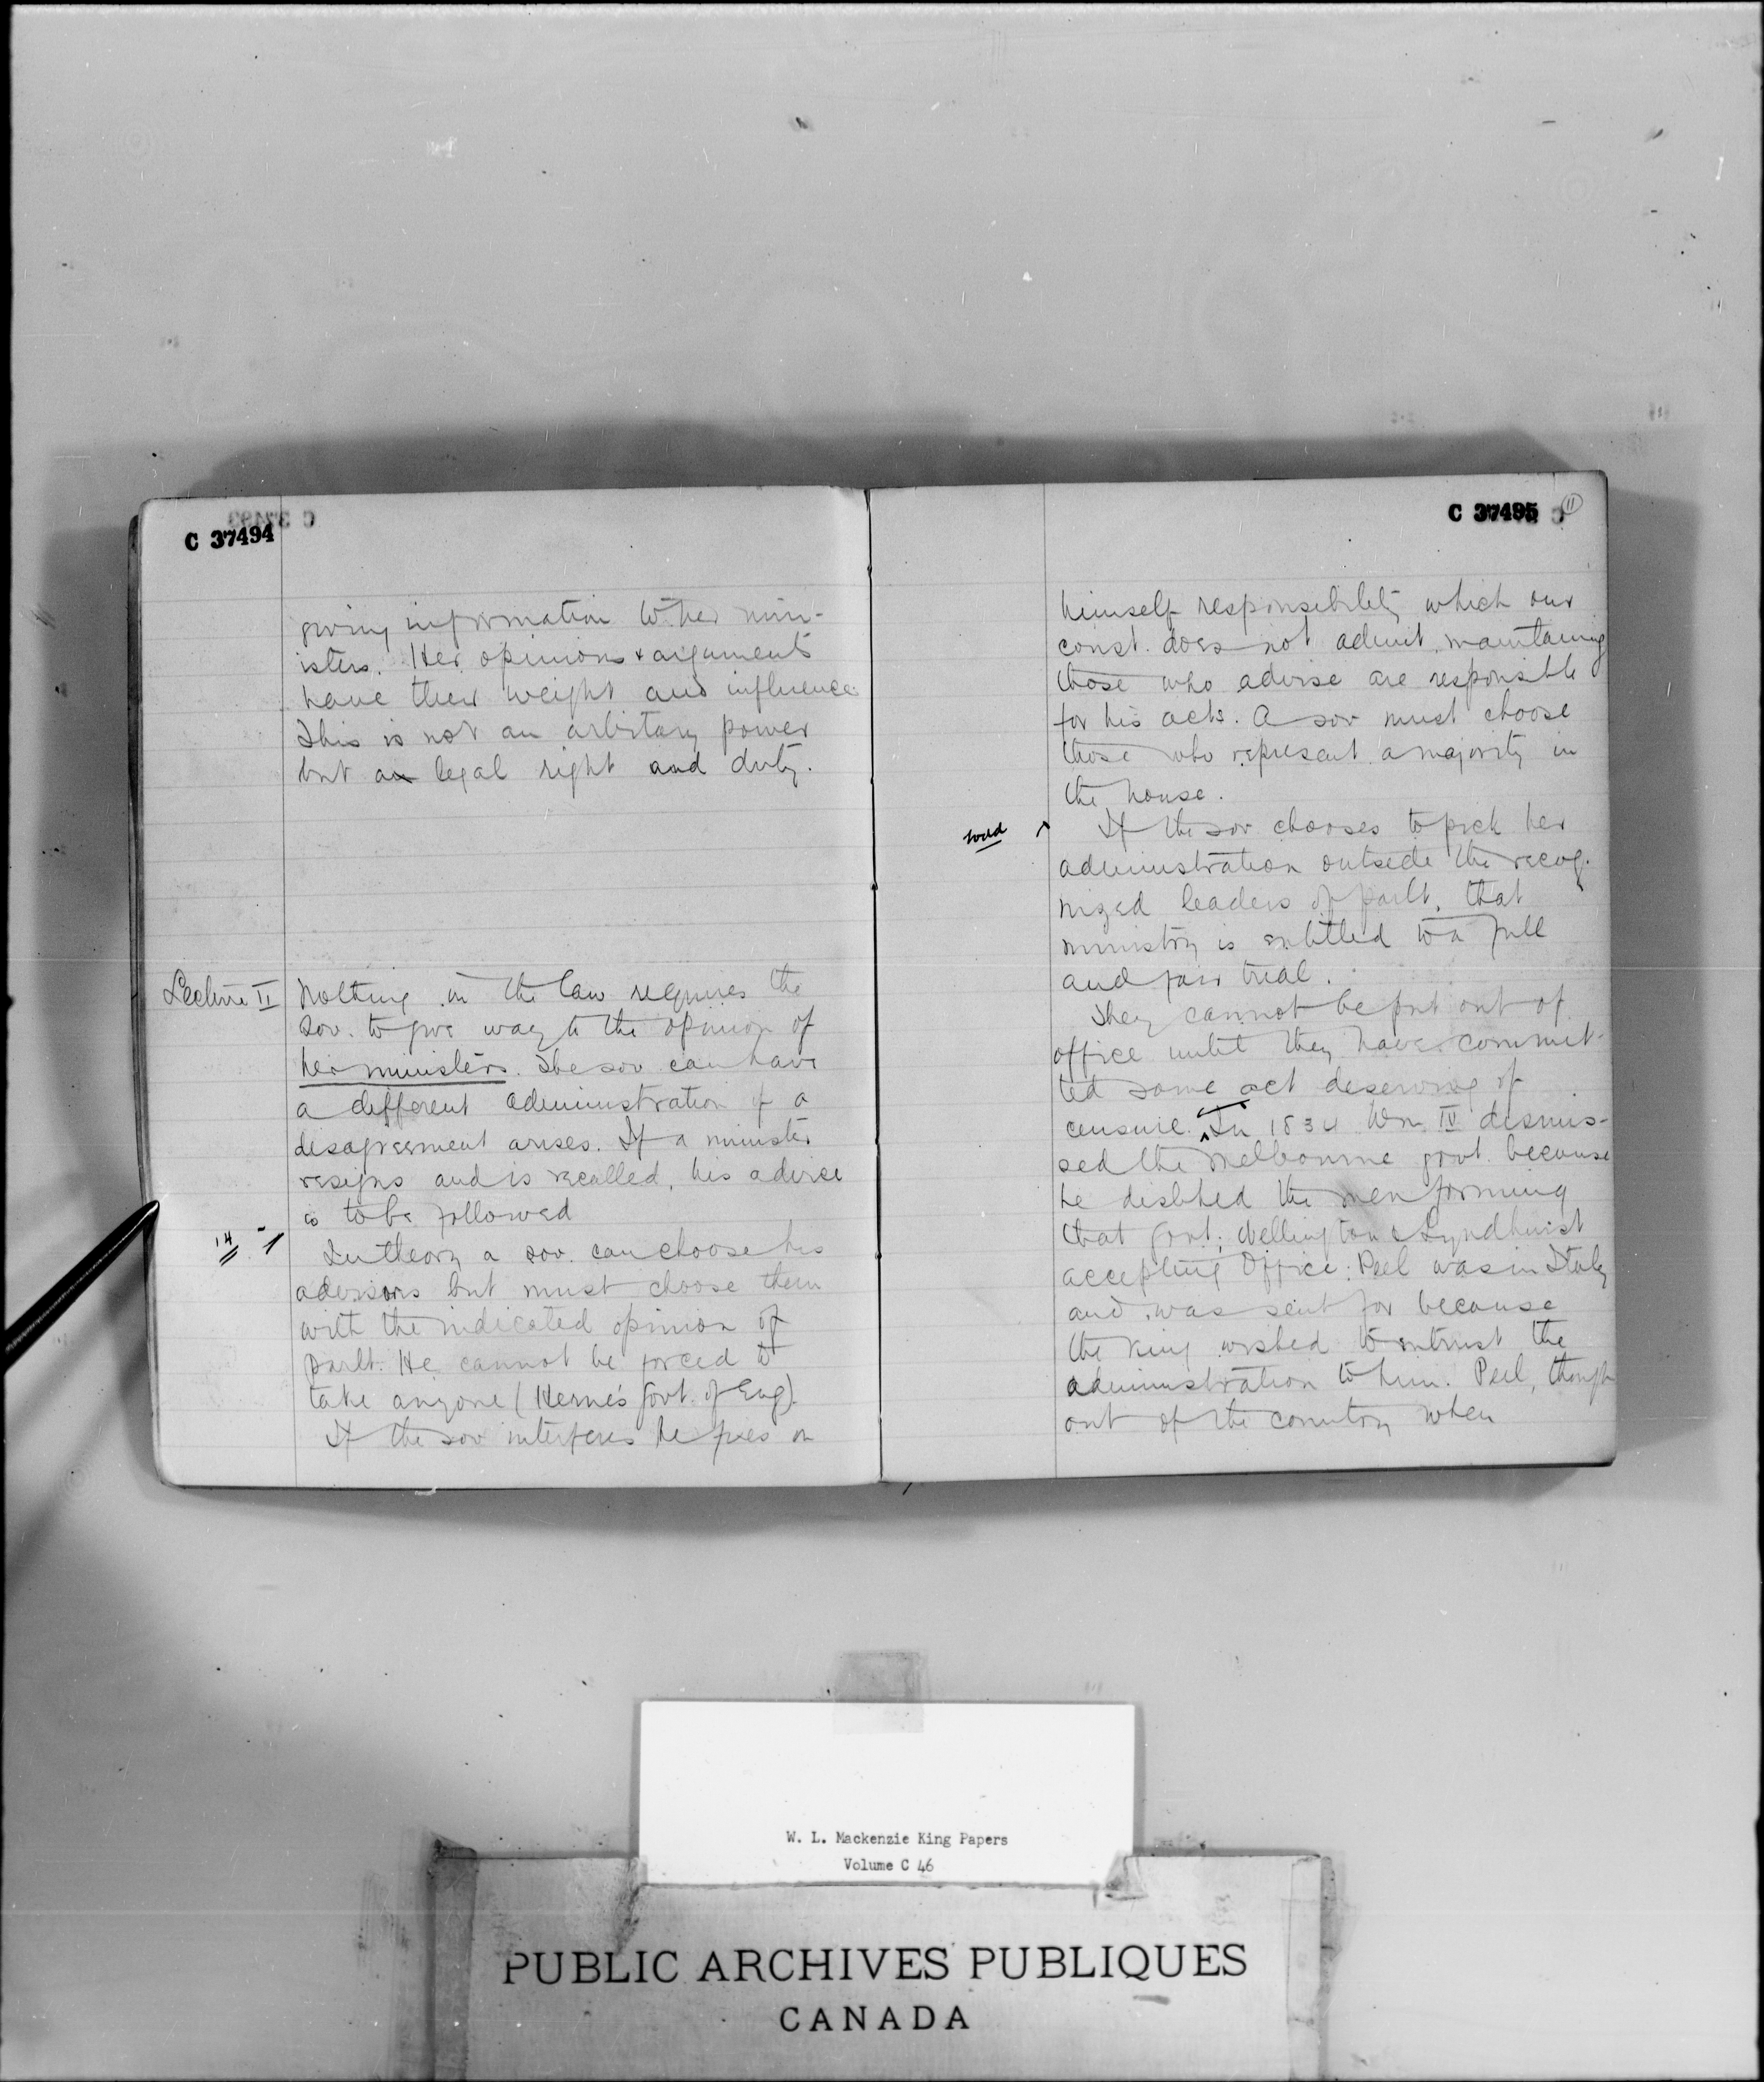 C 37494
giving information to her min-
isters. Her opinions & arguments
have their weight and influence.
This is not an arbitary power
but a legal right and duty.
Lecture II
Nothing in the law requires the
Sov. to give way to the opinion of
her ministers. The sov can have
a different administration if a
disagreement arises. If a minister
resigns and is recalled, his advise
is to be followed
14
In theory a sov. can choose his
advisors but must choose them
with the indicated opinion of
parlt. He cannot be forced to
take anyone (Herne's Govt. of Eng).
If the sov interferes he puts on
C 37495
11
himself responsibility which our
const. does not admit, maintaining
those who advise are responsible
for his acts. A sov must choose
those who represent a majority in
the house.
If the sov chooses to pick her
administration outside the recog-
nized leaders of parlt, that
ministry is entitled to a full
and fair trial.
They cannot be put out of
office until they have commit-
ted some act deserving of
censure. In 1834 Wm IV dismis-
sed the Melbourne govt. because
he disliked the men forming
that govt; Wellington & Lyndhurst
accepting Office: Peel was in Italy
and was sent for because
the King wished to entrust the
administration to him. Peel, though
out of the country when
W. L. Mackenzie King Papers
Volume C 46
PUBLIC ARCHIVES PUBLIQUES
CANADA